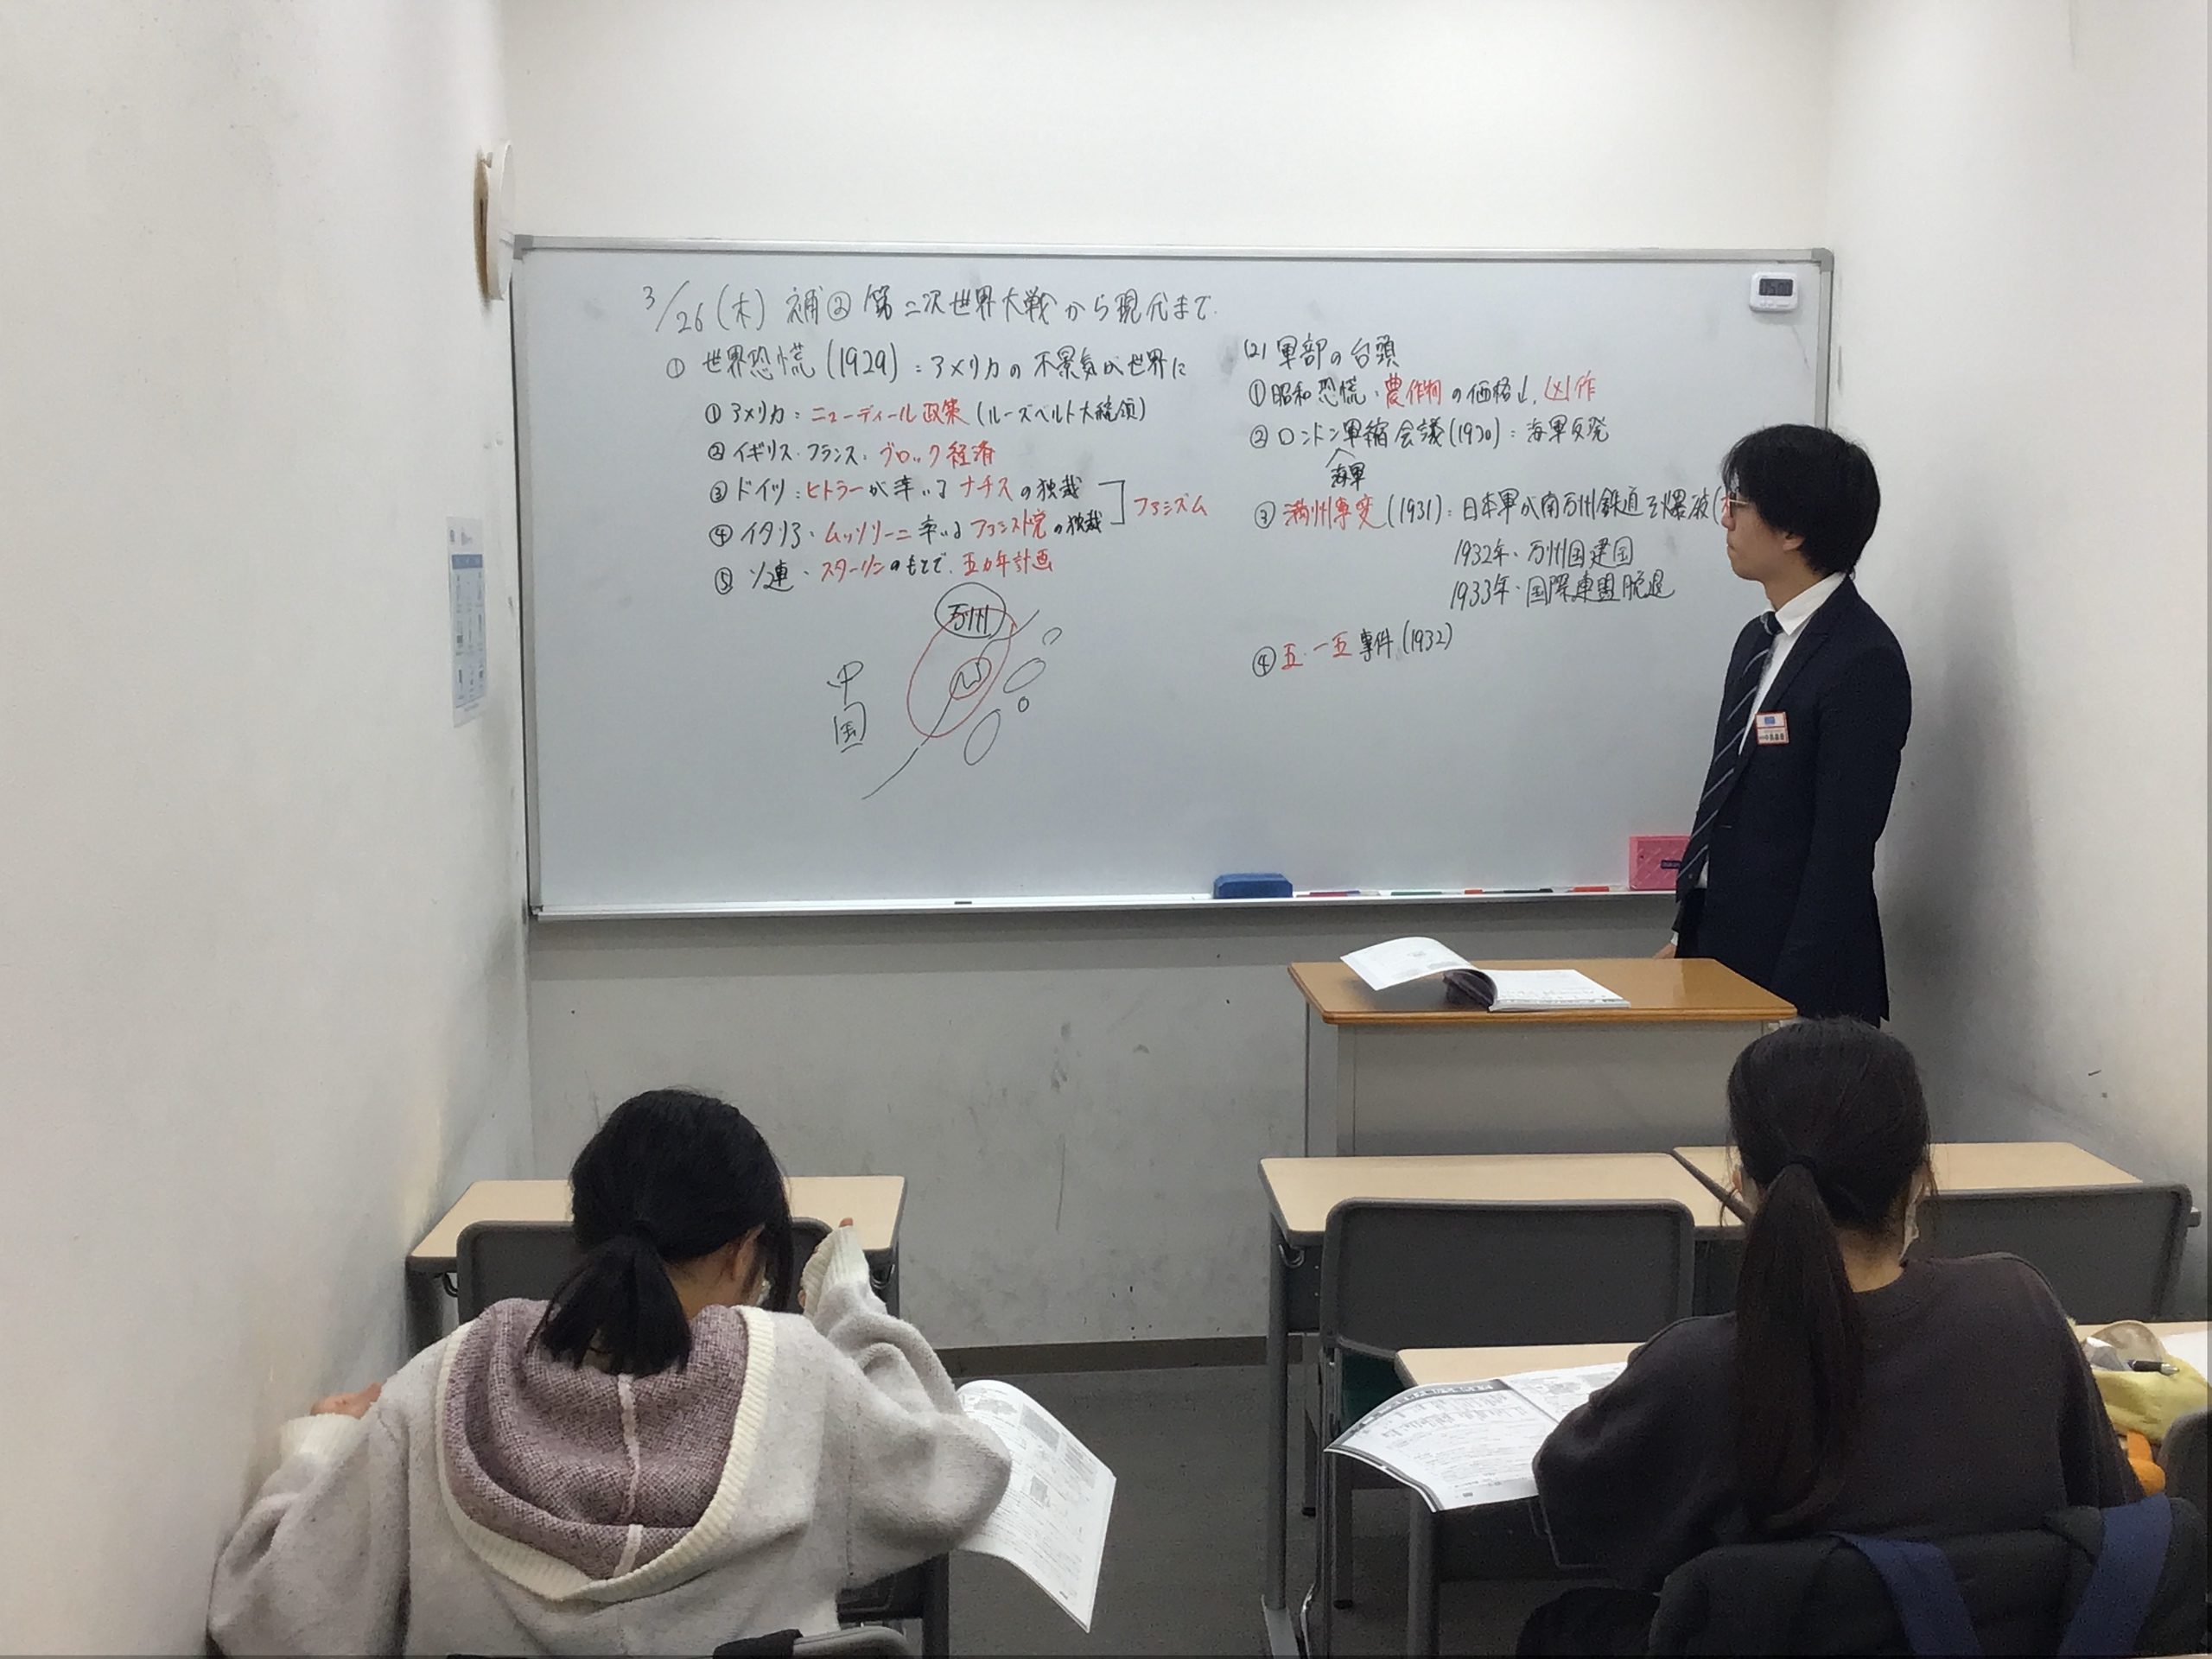 3/26(木) 補② 第二次世界大戦から現代まで
① 世界恐慌(1929):アメリカの不景気が世界に
①アメリカ:ニューディール政策(ルーズベルト大統領)
②イギリス・フランス:ブロック経済
③ドイツ:ヒトラーが率いるナチスの独裁
④イタリア:ムッソリーニ率いるファシスト党の独裁
ファシズム
⑤ソ連:スターリンのもとで、五カ年計画
万州
中国
(2)軍部の台頭
①昭和恐慌:農作物の価格↓、凶作
②ロンドン軍縮会議(1930):海軍反発
海軍
③満州事変(1931):日本軍が南万州鉄道を爆破(
1932年・万州国建国
1933年・国際連盟脱退
④五・一五事件(1932)